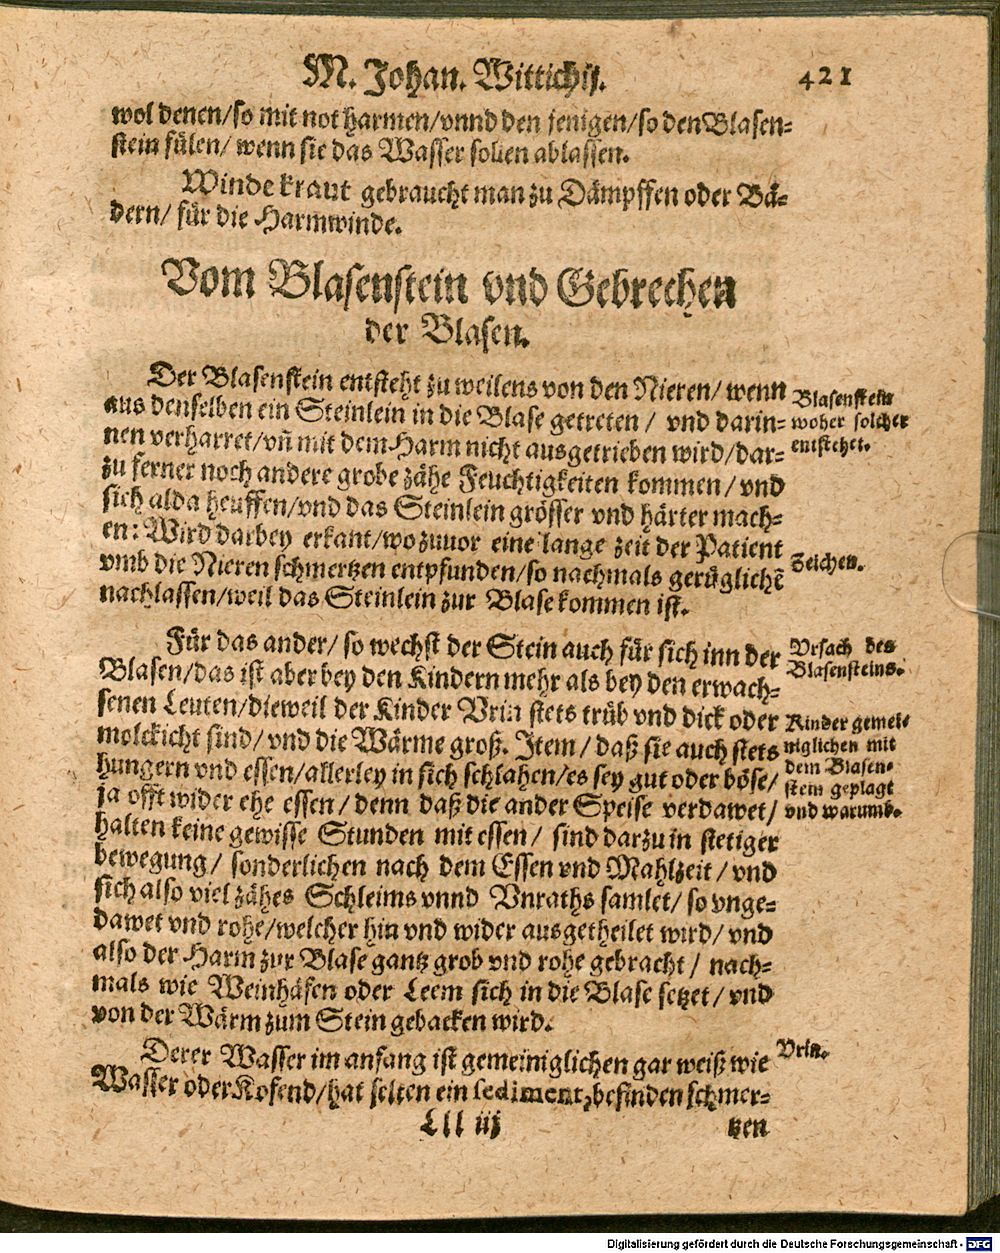 M. Johan. Wittichij. 421
wol denen/so mit not harmen/vnnd den jenigen/so den Blasen⸗
stein fülen/ wenn sie das Wasser sollen ablassen.
Winde kraut gebraucht man zu Dämpffen oder Bä⸗
dern/ für die Harmwinde.
Vom Blasenstein vnd Gebrechen
der Blasen.
Der Blasenstein entsteht zu weilens von den Nieren/ wenn
aus denselben ein Steinlein in die Blase getreten / vnd darin⸗
nen verharret/vn̄ mit dem Harm nicht ausgetrieben wird/dar⸗
zu ferner noch andere grobe zähe Feuchtigkeiten kommen/ vnd
sich alda heuffen/vnd das Steinlein grösser vnd härter mach⸗
en: Wird darbey erkant/wo zuuor eine lange zeit der Patient
vmb die Nieren schmertzen entpfunden/so nachmals gerüglichē
nachlassen/weil das Steinlein zur Blase kommen ist.
Blasenstein
woher solcher
entstehet.
Zeichen.
Für das ander/ so wechst der Stein auch für sich inn der
Blasen/das ist aber bey den Kindern mehr als bey den erwach⸗
senen Leuten/dieweil der Kinder Vrin stets trüb vnd dick oder
molckicht sind/ vnd die Wärme groß. Item/ daß sie auch stets
hungern vnd essen/allerley in sich schlahen/es sey gut oder böse/
ja offt wider ehe essen/ denn daß die ander Speise verdawet/
halten keine gewisse Stunden mit essen/ sind darzu in stetiger
bewegung/ sonderlichen nach dem Essen vnd Mahlzeit/ vnd
sich also viel zähes Schleims vnnd Vnraths samlet/ so vnge⸗
dawet vnd rohe/welcher hin vnd wider ausgetheilet wird/ vnd
also der Harm zur Blase gantz grob vnd rohe gebracht/ nach⸗
mals wie Weinhäfen oder Leem sich in die Blase setzet/ vnd
von der Wärm zum Stein gebacken wird.
Vrsach des
Blasensteins.
Kinder gemei⸗
niglichen mit
dem Blasen⸗
stein geplagt
vnd warumb.
Derer Wasser im anfang ist gemeiniglichen gar weiß wie
Wasser oder Kofend/hat selten ein sediment, befinden schmer⸗
Vrin.
Lll iij tzen
Digitalisierung gefördert durch die Deutsche Forschungsgemeinschaft - DFG